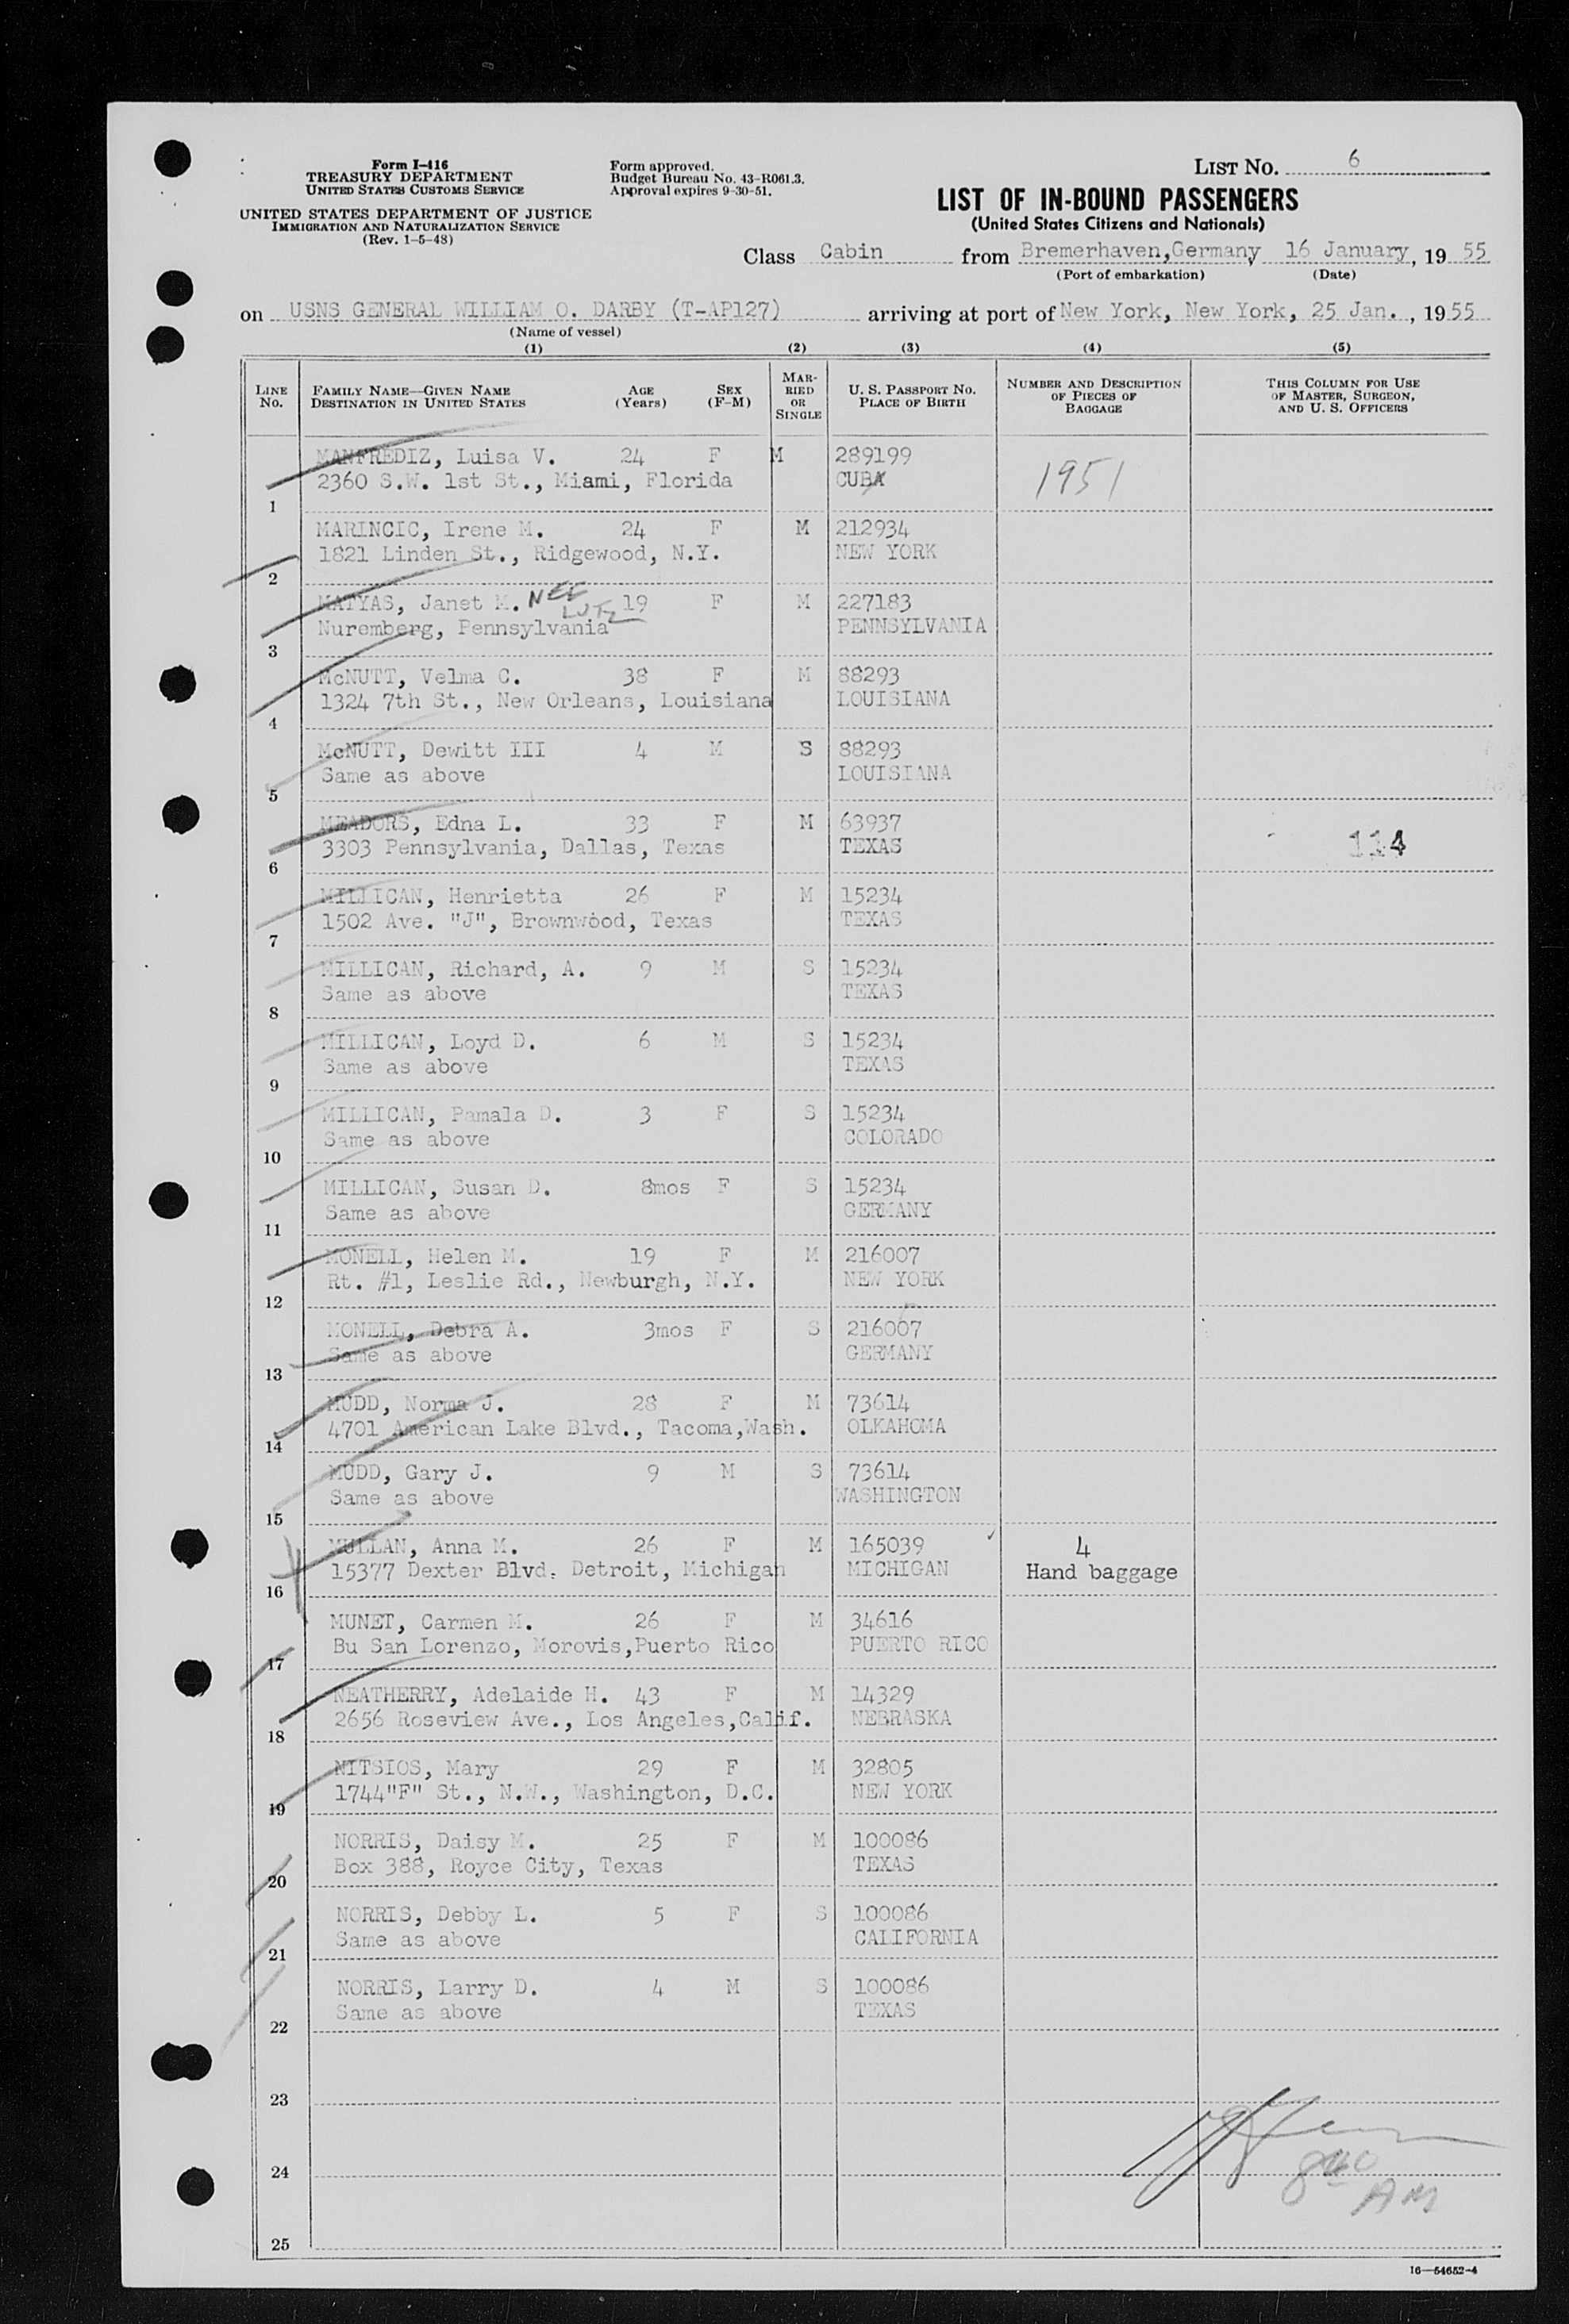 Form I-416
TREASURY DEPARTMENT
UNITED STATES CUSTOMS SERVICE
UNITED STATES DEPARTMENT OF JUSTICE
IMMIGRATION AND NATURALIZATION SERVICE
(Rev. 1-5-48)
Form approved.
Budget Bureau No. 43-R061.3.
Approval expires 9-30-51.
LIST No. 6
LIST OF IN-BOUND PASSENGERS
(United States Citizens and Nationals)
Class Cabin from Bremerhaven,Germany 16 January, 19 55
(Port of embarkation) (Date)
on USNS GENERAL WILLIAM O. DARBY (T-AP127) arriving at port of New York, New York, 25 Jan. , 1955
(Name of vessel)
(1) (2) (3) (4) (5)
LINE No. FAMILY NAME—GIVEN NAME DESTINATION IN UNITED STATES AGE (Years) SEX (F-M) MARRIED OR SINGLE U. S. PASSPORT No. PLACE OF BIRTH NUMBER AND DESCRIPTION OF PIECES OF BAGGAGE THIS COLUMN FOR USE OF MASTER, SURGEON, AND U. S. OFFICERS
MANFREDIZ, Luisa V. 24 F M 289199
2360 S.W. 1st St., Miami, Florida CUBA 1951
1
MARINCIC, Irene M. 24 F M 212934
1821 Linden St., Ridgewood, N.Y. NEW YORK
2
MATYAS, Janet M. NEE LUTZ 19 F M 227183
Nuremberg, Pennsylvania PENNSYLVANIA
3
McNUTT, Velma C. 38 F M 88293
1324 7th St., New Orleans, Louisiana LOUISIANA
4
McNUTT, Dewitt III 4 M S 88293
Same as above LOUISIANA
5
MEADORS, Edna L. 33 F M 63937
3303 Pennsylvania, Dallas, Texas TEXAS 114
6
MILLICAN, Henrietta 26 F M 15234
1502 Ave. "J", Brownwood, Texas TEXAS
7
MILLICAN, Richard, A. 9 M S 15234
Same as above TEXAS
8
MILLICAN, Loyd D. 6 M S 15234
Same as above TEXAS
9
MILLICAN, Pamala D. 3 F S 15234
Same as above COLORADO
10
MILLICAN, Susan D. 8mos F S 15234
Same as above GERMANY
11
MONELL, Helen M. 19 F M 216007
Rt. #1, Leslie Rd., Newburgh, N.Y. NEW YORK
12
MONELL, Debra A. 3mos F S 216007
Same as above GERMANY
13
MUDD, Norma J. 28 F M 73614
4701 American Lake Blvd., Tacoma,Wash. OLKAHOMA
14
MUDD, Gary J. 9 M S 73614
Same as above WASHINGTON
15
MULLAN, Anna M. 26 F M 165039 4
15377 Dexter Blvd. Detroit, Michigan MICHIGAN Hand baggage
16
MUNET, Carmen M. 26 F M 34616
Bu San Lorenzo, Morovis,Puerto Rico PUERTO RICO
17
NEATHERRY, Adelaide H. 43 F M 14329
2656 Roseview Ave., Los Angeles,Calif. NEBRASKA
18
NITSIOS, Mary 29 F M 32805
1744"F" St., N.W., Washington, D.C. NEW YORK
19
NORRIS, Daisy M. 25 F M 100086
Box 388, Royce City, Texas TEXAS
20
NORRIS, Debby L. 5 F S 100086
Same as above CALIFORNIA
21
NORRIS, Larry D. 4 M S 100086
Same as above TEXAS
22
23
24
840 AM
25
16—54652-4